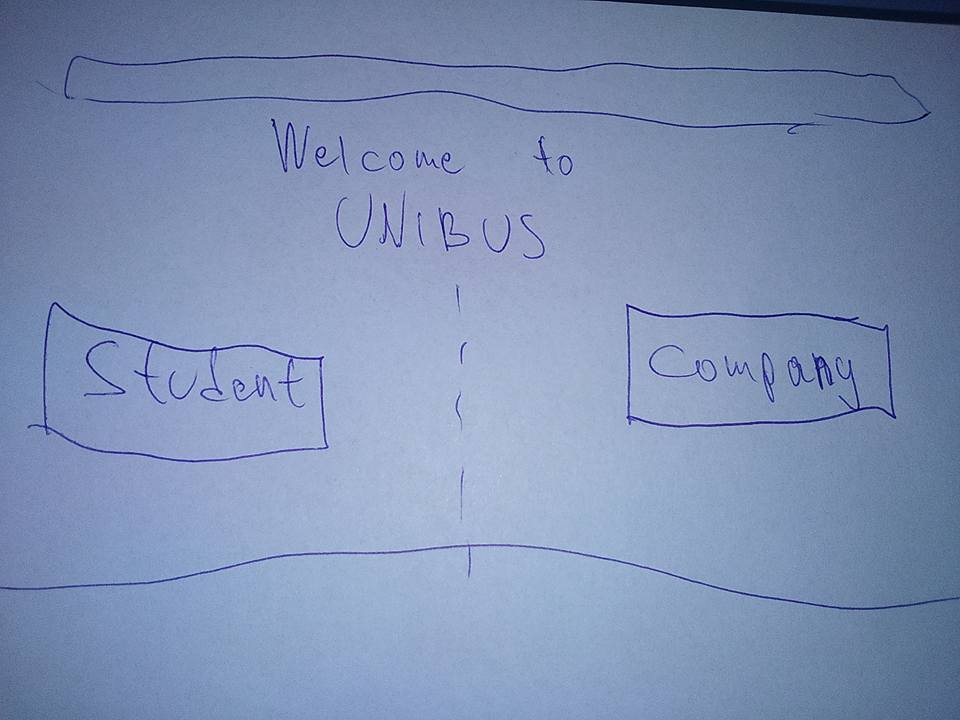 Welcome to
UNIBUS
Student
Company